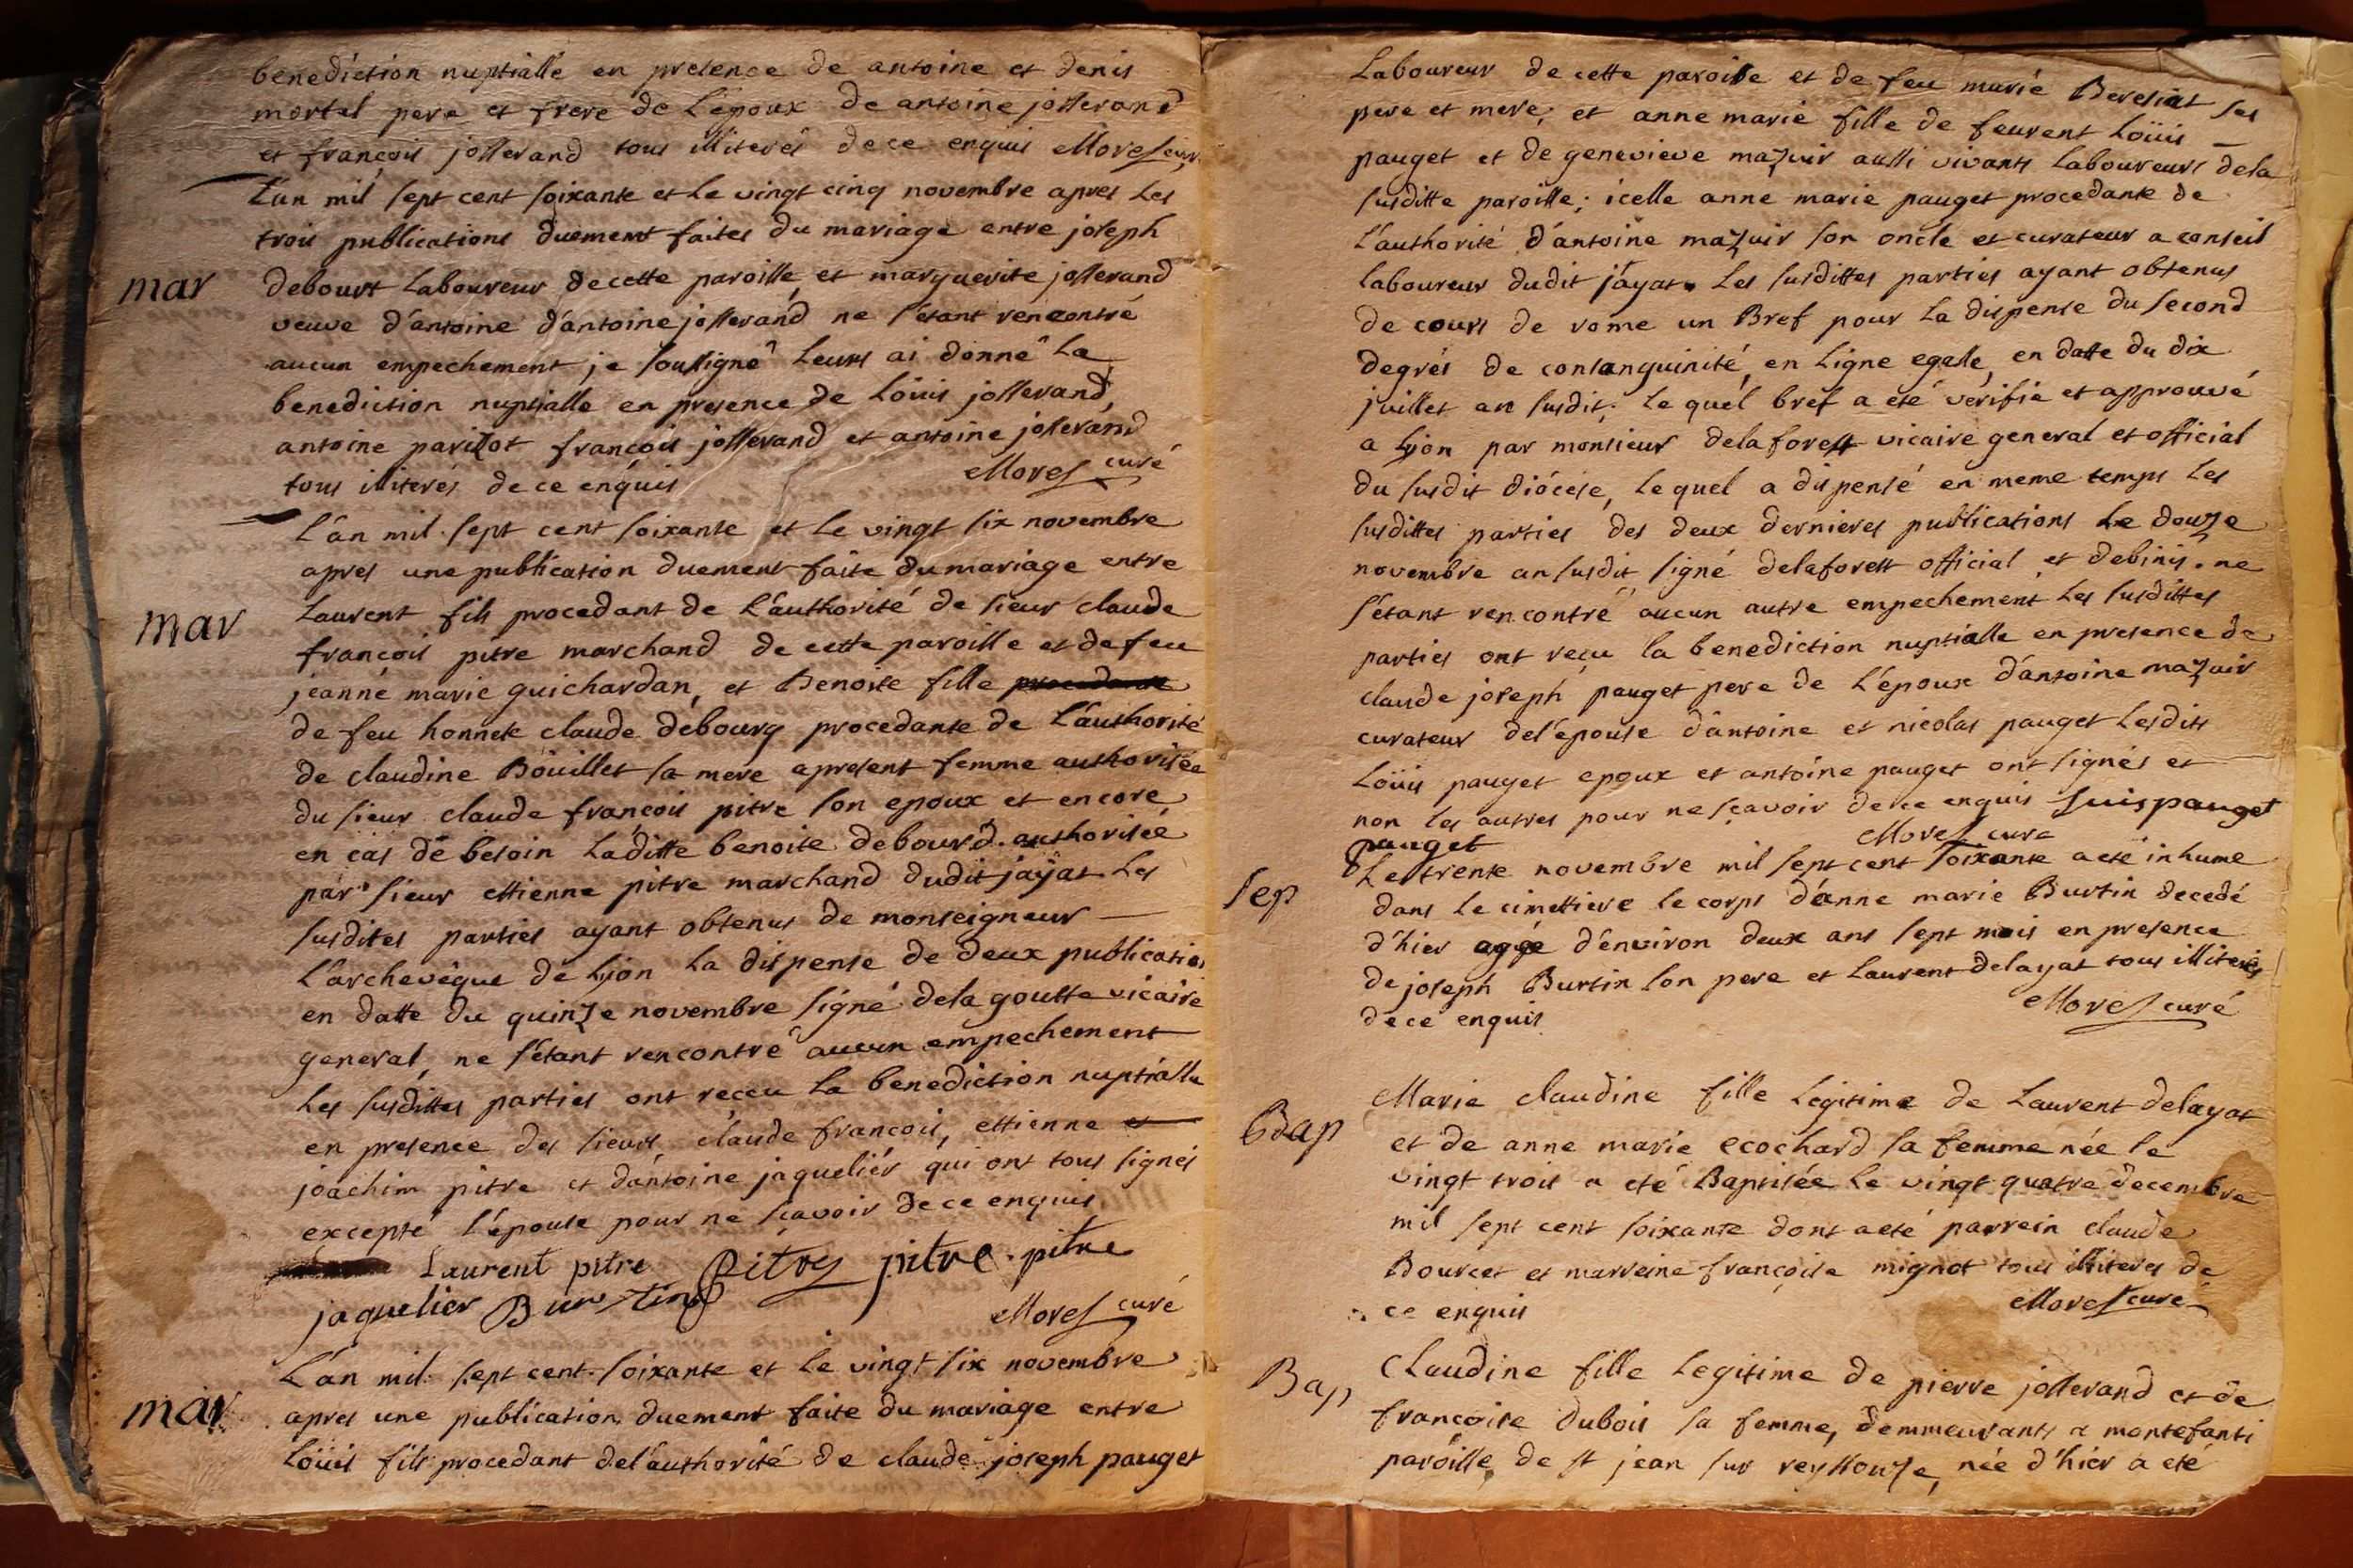 benediction nuptialle en presence de antoine et denis
mortel pere et frere de l'epoux de antoine josserand
et françois josserand tous illiterés de ce enquis Morel curé
L'an mil sept cent soixante et le vingt cinq novembre apres les
trois publications duement faites du mariage entre joseph
mar
debourt laboureur de cette paroisse, et marguerite josserand
veuve d'antoine d'antoine josserand ne s'etant rencontré
aucun empechement je soussigné leurs ai donné la
benediction nuptialle en presence de Loüis josserand,
antoine parillot françois josserand et antoine josserand
tous illiterés de ce enquis Morel curé
L'an mil sept cent soixante et le vingt six novembre
apres une publication duement faite du mariage entre
mar
Laurent fils procedant de l'authorité de sieur claude
françois pitre marchand de cette paroisse et de feu
jeanne marie guichardan, et Benoite fille procedante
de feu honnete claude debourg procedante de l'authorité
de claudine Böuillet sa mere apresent femme authorisée
du sieur claude françois pitre son epoux et encore
en cas de besoin laditte benoite debourd authorisée
par sieur ettienne pitre marchand dudit jäyat les
susdites parties ayant obtenus de monseigneur
L'archevêque de Lyon la dispense de deux publicatio
en datte du quinze novembre signé delagoutte vicaire
general, ne s'etant rencontré aucun empechement
les susdittes parties ont receu la benediction nuptialle
en presence des sieurs claude françois, ettienne et
joachim pitre et d'antoine jaqueliér qui ont tous signés
excepté l'épouse pour ne sçavoir de ce enquis
Laurent pitre Pitre pitre pitre
jaquelier Burtin
Morel curé
L'an mil sept cent soixante et le vingt six novembre
mar
apres une publication duement faite du mariage entre
Loüis fils procedant de l'authorité de claude joseph pauget
Laboureur de cette paroisse et de feu marie Bereziat ses
pere et mere, et anne marie fille de feurent Loüis
pauget et de genevieve mazuir aussi vivants laboureurs dela
susditte paroisse; icelle anne marie pauget procedante de
l'authorité d'antoine mazuir son oncle et curateur a conseil
laboureur dudit jäyat. Les susdittes parties ayant obtenus
de cours de rome un Bref pour la dispense du second
degrés de consanguinité, en ligne egale, en datte du dix
juillet an susdit, lequel bref a eté verifié et approuvé
a Lyon par monsieur delaforest vicaire general et official
du susdit diócese, lequel a dispensé en meme temps les
susdittes parties des deux dernieres publications le douze
novembre an susdit signé delaforest official et debinis. ne
s'etant rencontré aucun autre empechement les susdittes
parties ont reçu la benediction nuptialle en presence de
claude joseph pauget pere de l'époux d'antoine mazuir
curateur del'epouse d'antoine et nicolas pauget lesdits
Loüis pauget epoux et antoine pauget ont signés et
non les autres pour ne sçavoir de ce enquis Luispauget
pauget Morel cure
sep
Le trente novembre mil sept cent soixante a eté inhume
dans le cimettiere le corps d'anne marie Burtin decedé
d'hier agée d'environ deux ans sept mois en presence
de joseph Burtin son pere et Laurent delayat tous illiterés
de ce enquis Morel curé
Bap
Marie claudine fille legitime de Laurent delayat
et de anne marie ecochard sa femme née le
vingt trois a eté Baptisée le vingt quatre decembre
mil sept cent soixante dont a eté parrein claude
Bourcet et marreine françoise mignot tous illiterés de
ce enquis Morel cure
Bap
Claudine fille legitime de pierre josserand et de
françoise Dubois sa femme, demmeurants a montefanti
paroisse de st jean sur reyssouze, née d'hier a eté